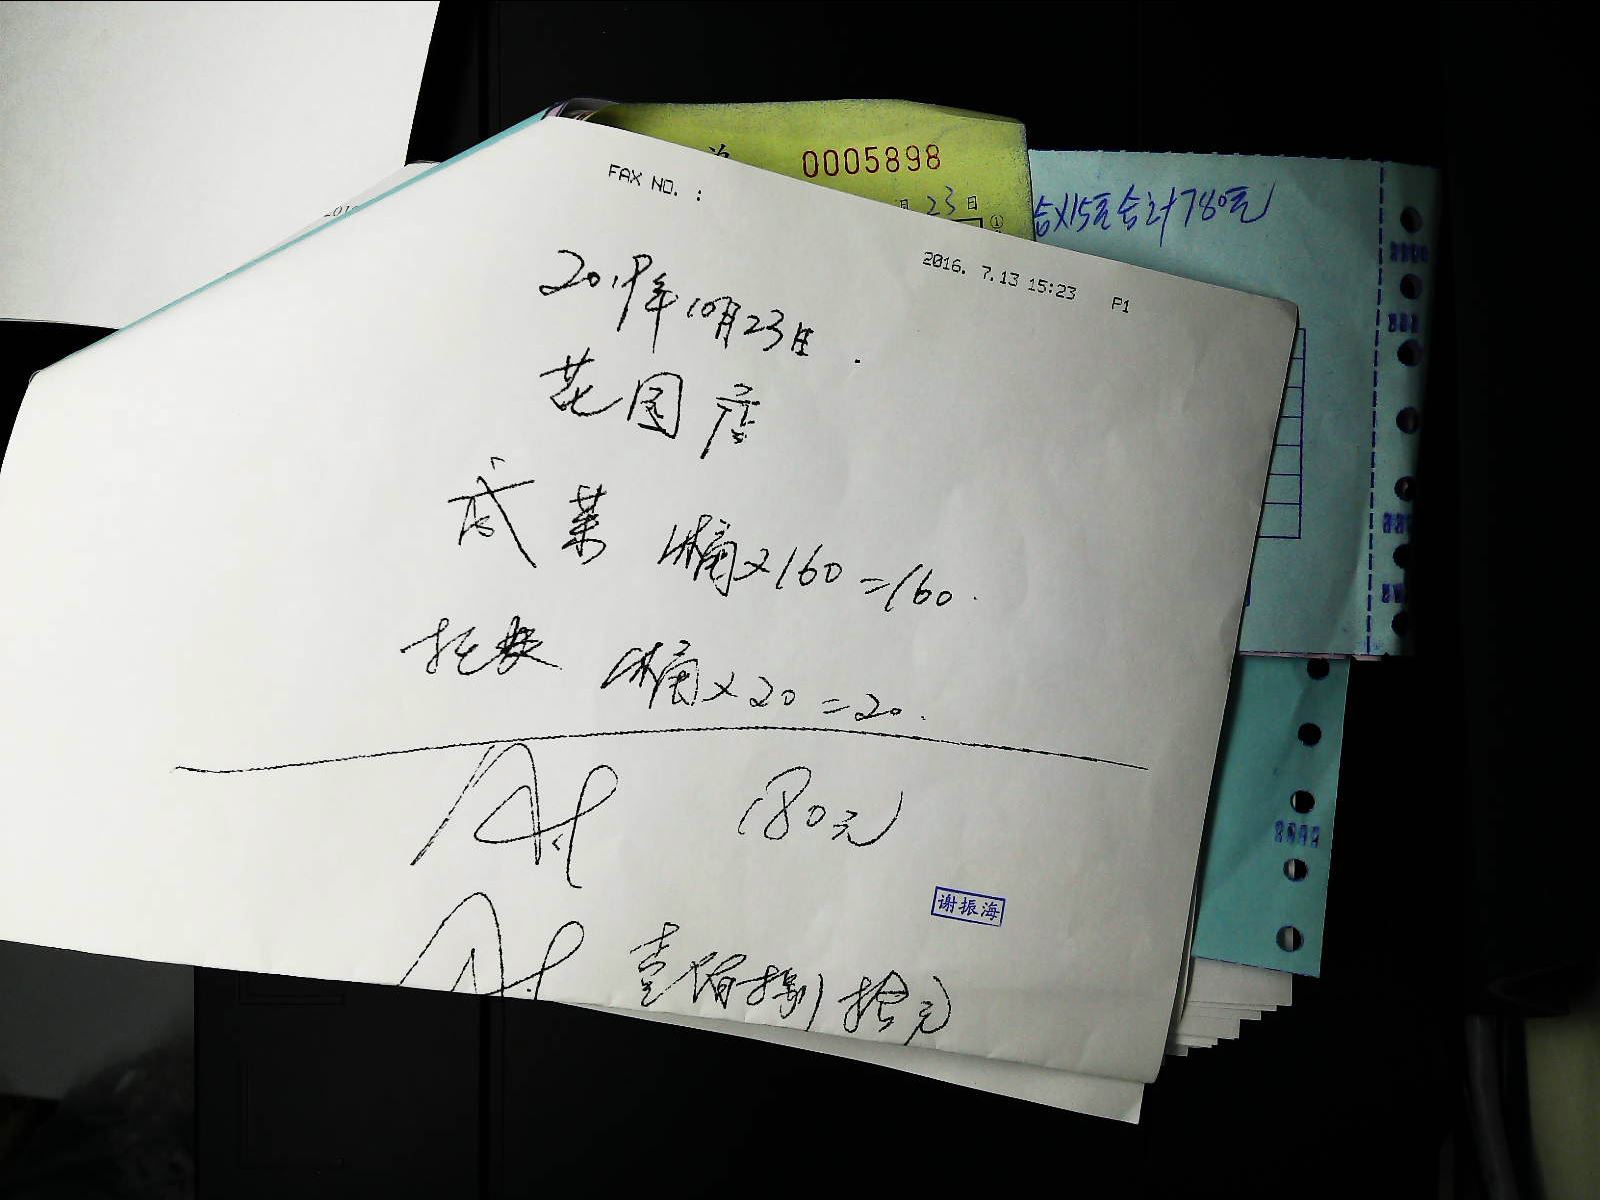 0005898
23日
台×15元合计780元
FAX NO. :
2016. 7.13 15:23 P1
2019年10月23日.
花园店
咸菜 1桶×160=160.
1桶×20=20.
180元
谢振海
壹佰捌拾元